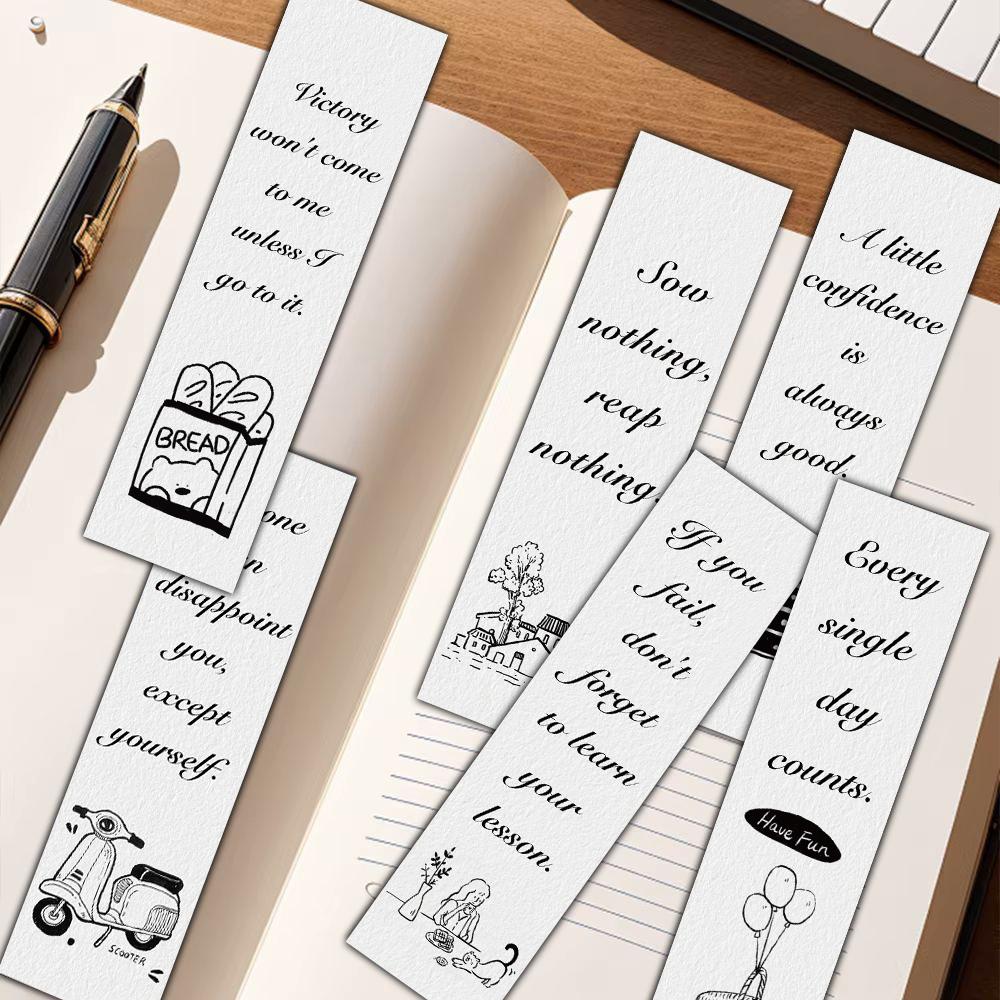 Victory
won't come
to me
unless I
go to it.
BREAD
one
n
disappoint
you,
except
yourself.
SCOOTER
Sow
nothing,
reap
nothing.
A little
confidence
is
always
good.
If you
fail,
don't
forget
to learn
your
lesson.
Every
single
day
counts.
Have Fun